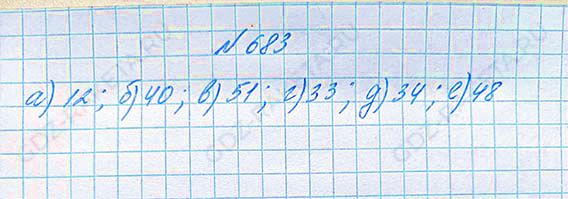 № 683
а) 12; б) 40; в) 51; г) 33; д) 34; е) 48